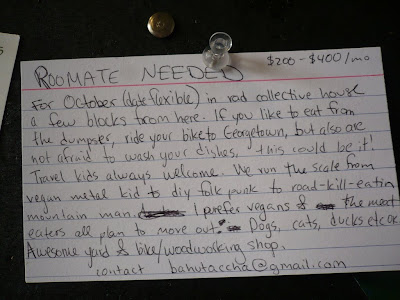 $200 - $400/mo
ROOMATE NEEDED
For October (date flexible) in rad collective house
a few blocks from here. If you like to eat from
the dumpser, ride your bike to Georgetown, but also are
not afraid to wash your dishes, this could be it!
Travel kids always welcome. We run the scale from
vegan metal kid to diy folk punk to road-kill-eatin
mountain man. I prefer vegans & the meat
eaters all plan to move out. Dogs, cats, ducks etc OK
Awesome yard & bike/woodworking shop.
contact bahutaccha@gmail.com